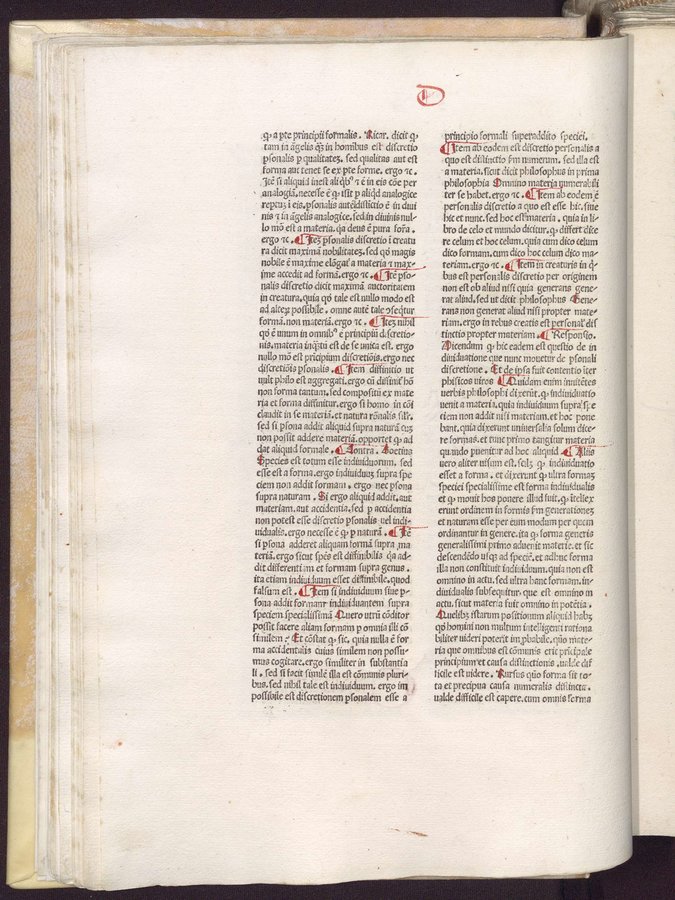 D
ꝙ a pte principii formalis. Ricar. dicit ꝙ
tam in āgelis q̄ꝫ in homibus est discretio
psonalis p qualitateꝫ. sed qualitas aut est
forma aut tenet se ex pte forme. ergo ⁊c.
analogiā. necesse ē ꝙ
nis ⁊ in āgelis analogice. sed in diuinis nul
lo mō est a materia. qa deus ē pura forā.
ergo ⁊c. ¶ Iteꝫ psonalis discretio ī creatu
ra dicit maximā nobilitateꝫ. sed qō magis
nobile ē maxime elōgat̄ a materia ⁊ max-
ime accedit ad formā. ergo ⁊c. ¶ Itē pso-
nalis discretio dicit maximā auctoritatem
in creatura. quia qō tale est nullo modo est
ad alteꝝ possibile. omne autē tale ꝯseqtur
formā. non materiā. ergo ⁊c. ¶ Iteꝫ nihil
qō ē unum in omnibꝰ ē principiū discretio-
nis. materia inqꝫtū est de se unica est. ergo
nullo mō est pricipium discretiōis. ergo nec
discretiōis psonalis. ¶ Item diffinitio ut
uult philo est aggregati. ergo cū diffinit̄ hō
non forma tantum. sed compositū ex mate
ria et forma diffinitur. ergo si homo in cōi
claudit in se materiā. et natura rōnalis silr̄.
sed si psona addit aliquid supra naturā cuꝫ
non possit addere materiā. opportet ꝙ ad
dat aliquid formale. ¶ Contra. Boetius
Species est totum esse indiuiduorum. sed
esse est a forma. ergo indiuiduꝫ supra spe
ciem non addit formam. ergo nec psona
supra naturam. Si ergo aliquid addit. aut
materiam. aut accidentia. sed p accidentia
non potest esse discretio psonalis uel indi-
uidualis. ergo necesse ē ꝙ p naturā. ¶ Itē
si psona adderet aliquam formā supra ma
teriām. ergo sicut spēs est diffinibilis qa ad-
dit differentiam et formam supra genus.
ita etiam indiuiduum esset diffinibile. quod
falsum est. ¶ Item si indiuiduum siue p-
sona addit formam indiuiduantem supra
speciem specialissimā Quero utrū cōditor
possit facere aliam formam p omnia illi cō
similem? Et cōstat ꝙ sic. quia nulla ē for
ma accidentalis cuius similem non possu-
mus cogitare. ergo similiter in substantia
li. sed si facit similē illa est cōmunis pluri-
bus. sed nihil tale est indiuiduum. ergo im
possibile est discretionem psonalem esse a
principio formali superaddito speciei.
¶ Item ab eodem est discretio personalis a
quo est distinctio fm numerum. sed illa est
a materia. sicut dicit philosophus in prima
philosophia Omnino materia numerabili
ter se habet. ergo ⁊c. ¶ Item ab eodem ē
personalis discretio a quo est esse hic. siue
hic et nunc. sed hoc est materia. quia in li-
bro de celo et mundo dicitur. ꝙ differt dice
re celum et hoc celum. quia cum dico celum
dico formam. cum dico hoc celum dico ma-
teriam. ergo ⁊c. ¶ Item in creaturis in q̄-
bus est personalis discretio per originem
non est ob aliud nisi quia generans gene-
rat aliud. sed ut dicit philosophus Gene-
rans non generat aliud nisi propter mate-
riam. ergo in rebus creatis est personal' dis
tinctio propter materiam. ¶ Responsio.
Dicendum ꝙ hic eadem est questio de in
diuiduatione que nunc mouetur de psonali
discretione. Et de ipsa fuit contentio iter
phisicos uiros ¶ Quidam enim initētes
uerbis philosophi dixerūt. ꝙ indiuiduatio
uenit a materia. quia indiuiduum supra spe
ciem non addit nisi materiam. et hoc pone
bant. quia dixerunt uniuersalia solum dice-
re formas. et tunc primo tangitur materia
quando puenitur ad hoc aliquid ¶ Aliis
uero aliter uisum est. scilꝫ ꝙ indiuiduatio
esset a forma. et dixerunt ꝙ ultra formaꝫ
speciei specialissime est forma indiuidualis
et ꝙ mouit hos ponere illud fuit. ꝙ itellex
erunt ordinem in formis fm generationeꝫ
et naturam esse per eum modum per quem
ordinantur in genere. ita ꝙ forma generis
generalissimi primo aduenit materie. et sic
descendēdo usqꝫ ad speciē. et adhuc forma
illa non constituit indiuiduum. quia non est
omnino in actu. sed ultra hanc formam. in-
diuidualis subsequitur. que est omnino in
actu. sicut materia fuit omnino in potētia.
Quelibꝫ istarum positionum aliquid habꝫ
qō homini non multum intelligenti rationa
biliter uideri poterit improbabile. quō mate-
ria que omnibus est cōmunis erit pricipale
principium et causa distinctionis. ualde dif
ficile est uidere. Rursus quō forma sit to-
ta et precipua causa numeralis distinctiōis.
ualde difficile est capere. cum omnis forma